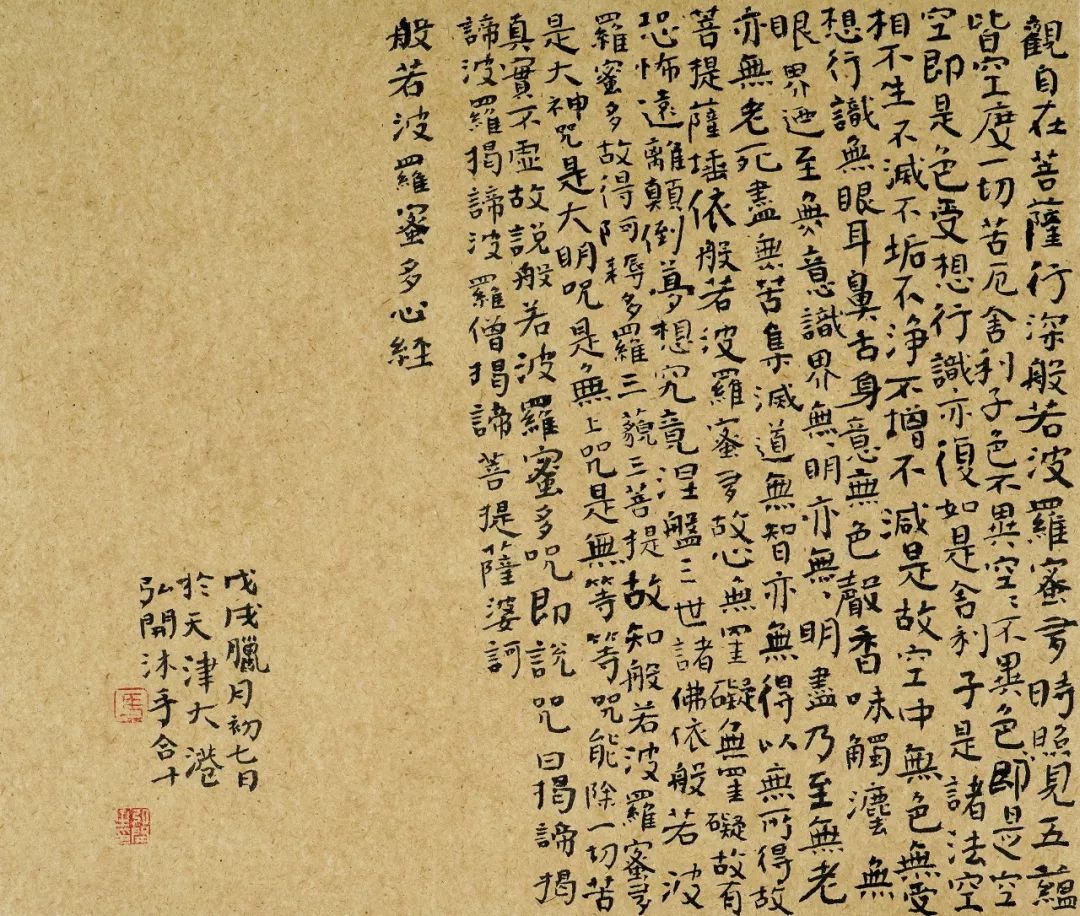 觀自在菩薩行深般若波羅蜜多時照見五蘊
皆空度一切苦厄舍利子色不異空〻不異色即是空
空即是色受想行識亦復如是舍利子是諸法空
相不生不滅不垢不淨不增不減是故空中無色無受
想行識無眼耳鼻舌身意無色聲香味觸灋無
眼界迺至無意識界無、明亦無、明盡乃至無老
亦無老死盡無苦集滅道無智亦無得以無所得故
菩提薩埵依般若波羅蜜多故心無罣礙無罣礙故有
恐怖遠離顛倒夢想究竟涅盤三世諸佛依般若波
羅蜜多故得阿耨多羅三藐三菩提故知般若波羅蜜多
是大神咒是大明咒是無上咒是無等等咒能除一切苦
真實不虛故說般若波羅蜜多咒即說咒曰揭諦揭
諦波羅揭諦波羅僧揭諦菩提薩婆訶
般若波羅蜜多心經
戊戌臘月初七日
於天津大港
弘開沐手合十